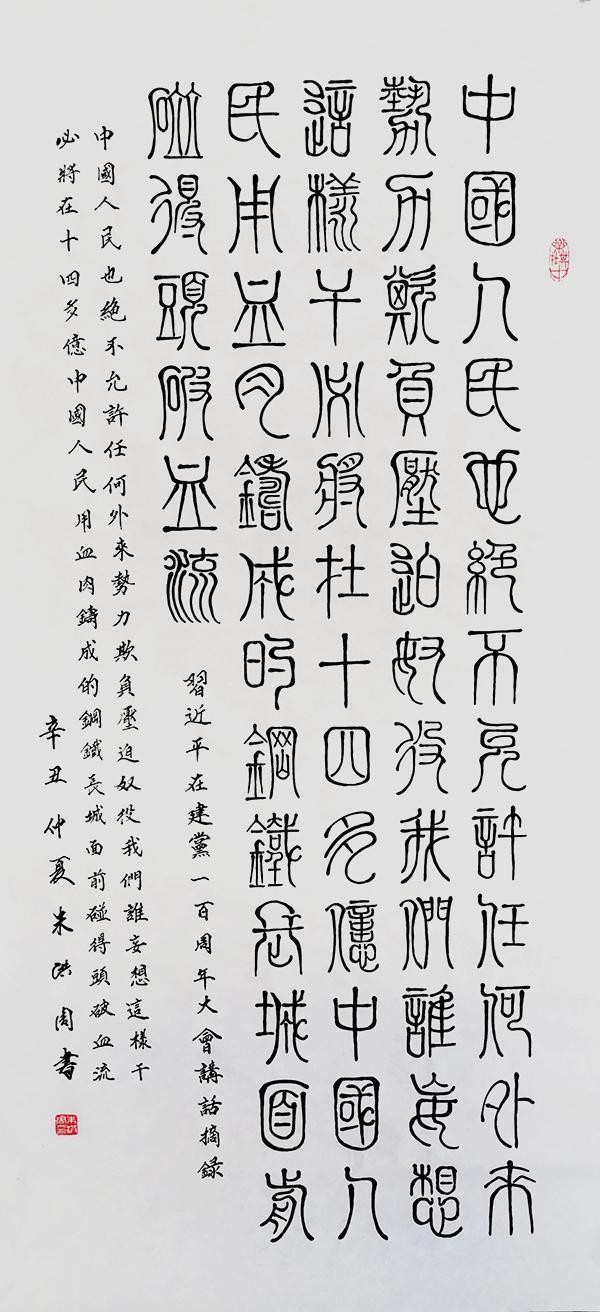 中國人民也絕不允許任何外來
勢力欺負壓迫奴役我們誰妄想
這樣干必將在十四多億中國人
民用血肉鑄成的鋼鐵長城面前
碰得頭破血流
習近平在建黨一百周年大會講話摘錄
中國人民也絕不允許任何外來勢力欺負壓迫奴役我們誰妄想這樣干
必將在十四多億中國人民用血肉鑄成的鋼鐵長城面前碰得頭破血流
辛丑仲夏朱洪周書